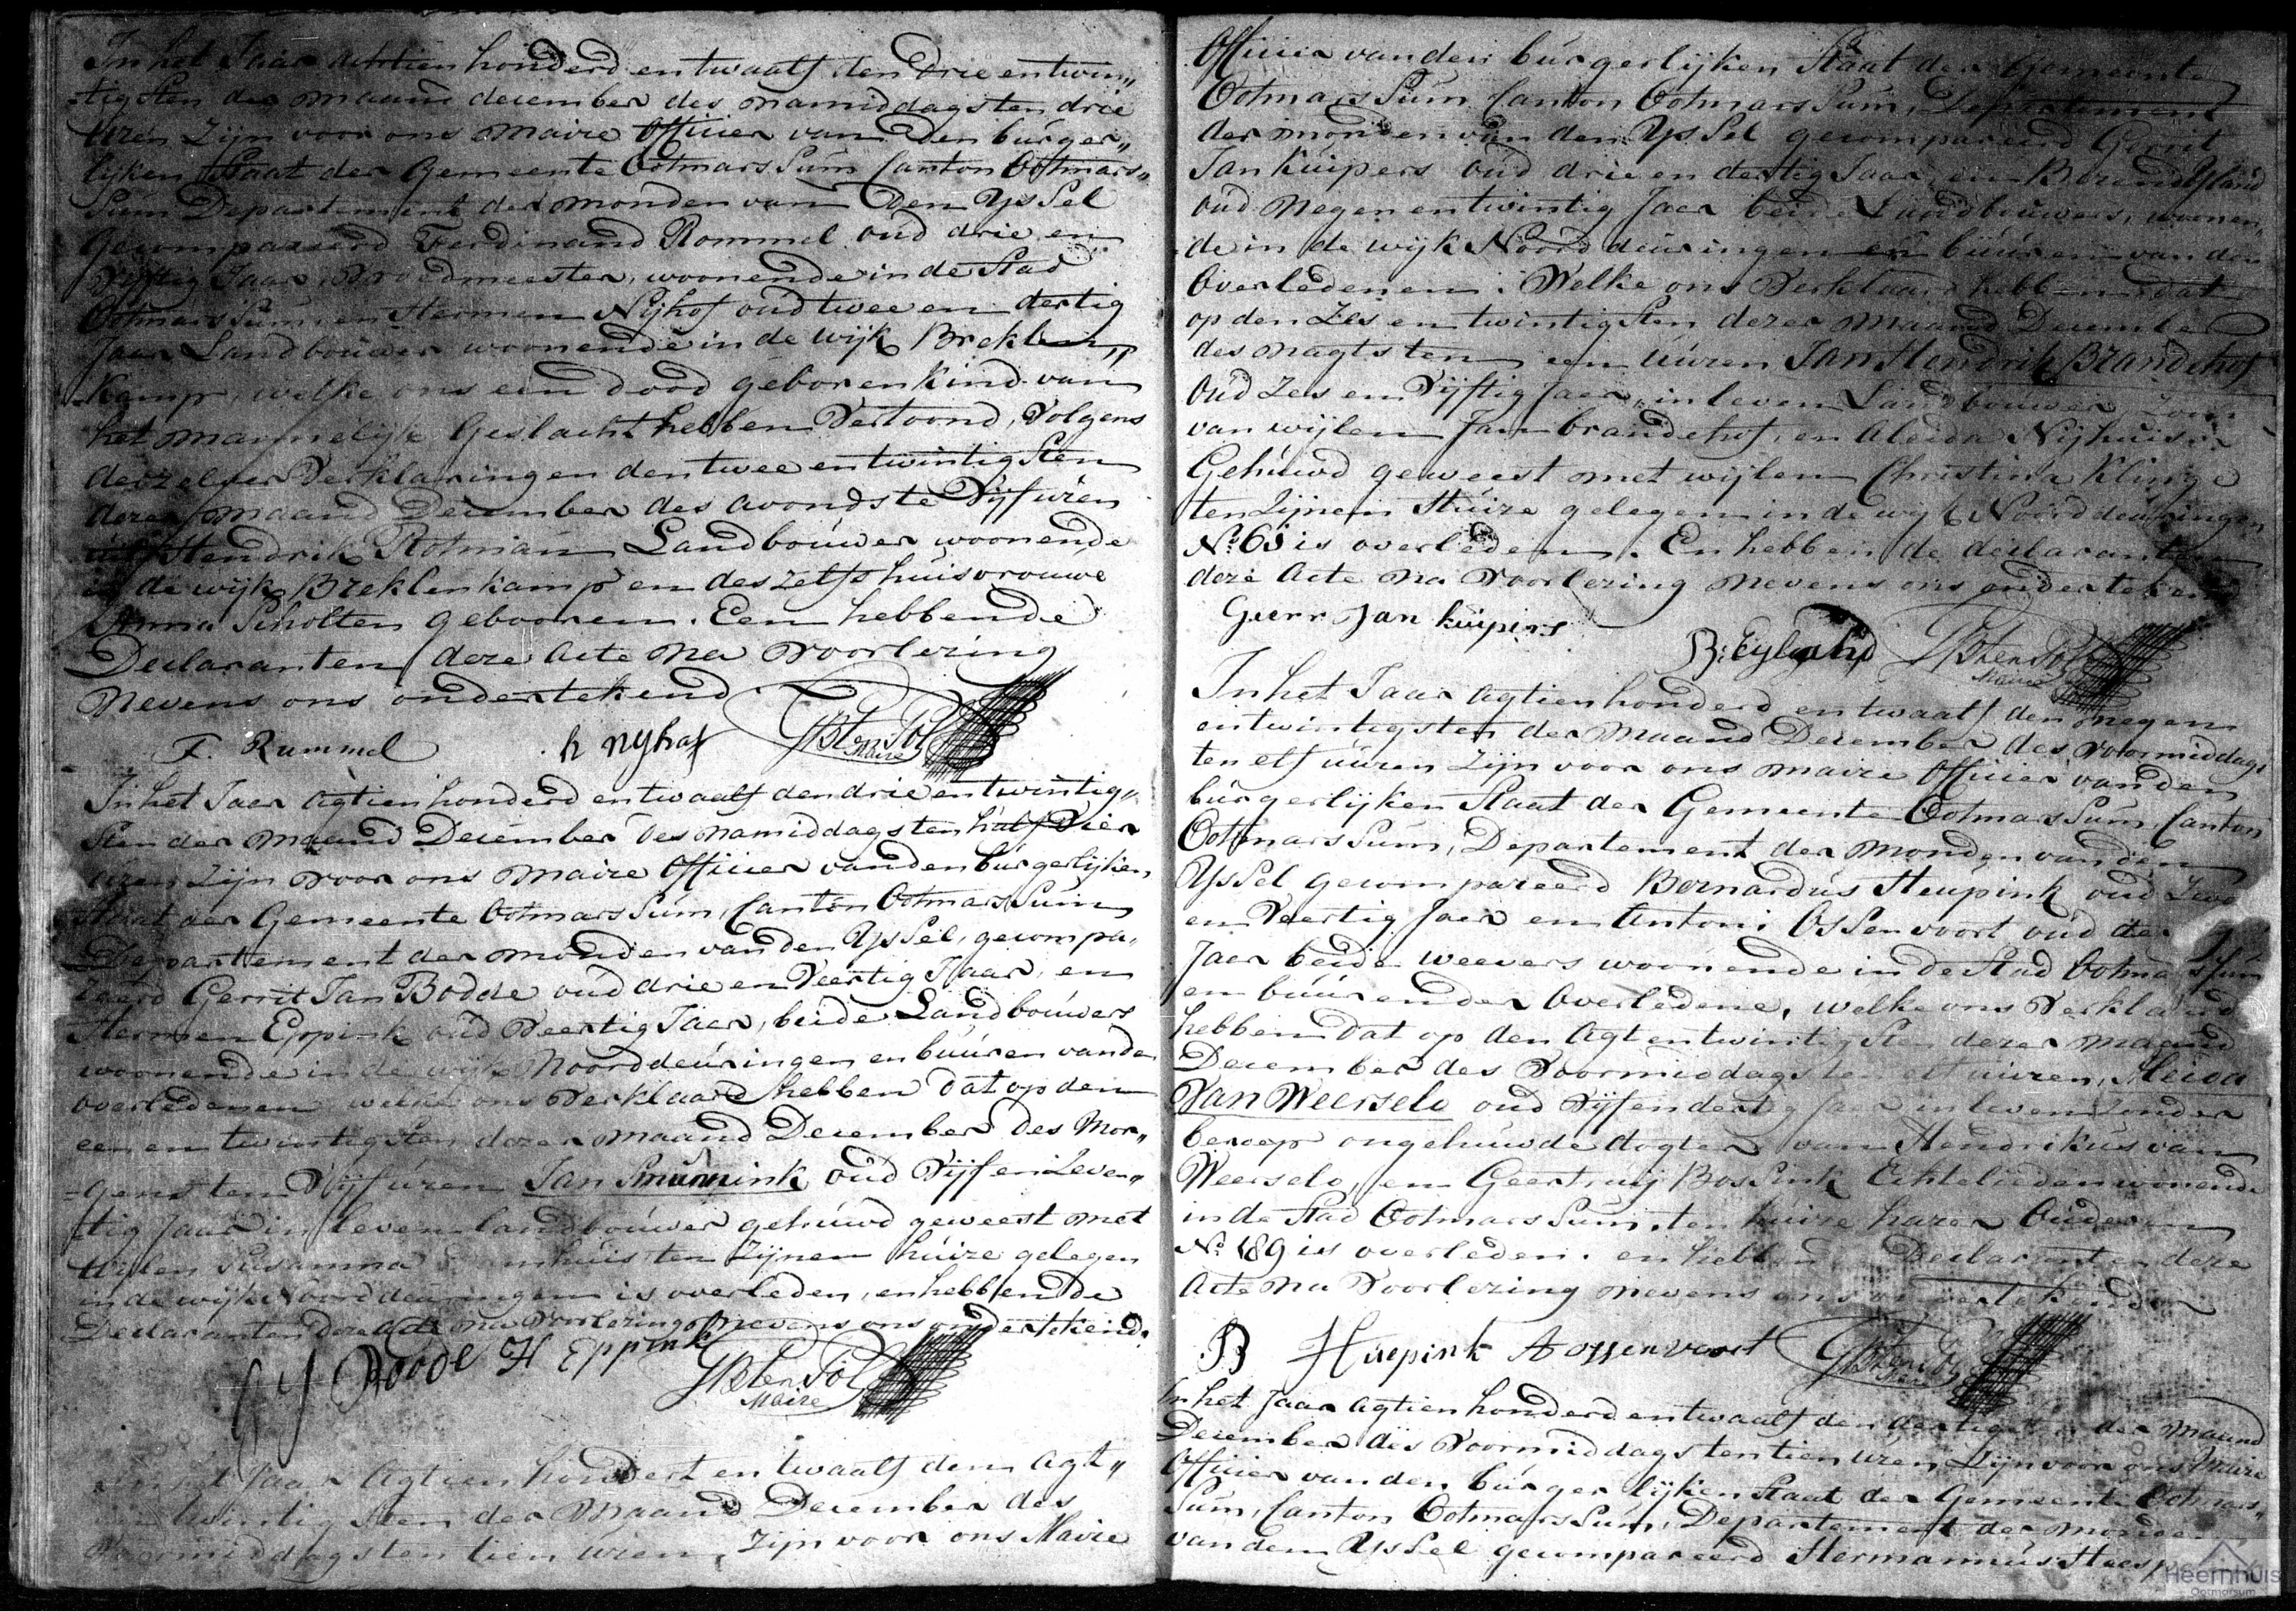 In het Jaar achtien honderd en twaalf den drie en twin„
tigsten der maand december des namiddags ten drie
uren Zijn voor ons Maire Officier van den burger„
lijken Staat der Gemeente Ootmarssum Canton Ootmars„
sum Departement der monden van den Yssel
gecompareerd Ferdinand Rommel oud drie en
Vijftig Jaar, Vroedmeester, woonende in de Stad
Ootmarssum, en Hermen Nijhof oud twee en dertig
Jaar Landbouwer woonende in de wijk Breklen„
kamp, welke ons een dood geboren Kind van
het mannelijk Geslacht hebben Vertoond, Volgens
derzelver Verklaringen den twee en twintigsten
dezer maand December des avonds te Vijf uren
uit Hendrik Rotman Landbouwer woonende
in de wijk Breklenkamp en des zelfs huisvrouwe
Anna Scholten gebooren. Een hebbende
Declaranten deze Acte na Voorlezing
Nevens ons ondertekend
F. Rummel h nyhof GB ten Pol
Maire
In het Jaar Agtien honderd en twaalf den drie en twintig„
sten der maand December des namiddags ten half Vier
uren Zijn voor ons Maire Officier van den burgerlijken
Staat der Gemeente Ootmarssum, Canton Ootmarssum
Departement der monden van den Yssel, gecompa„
reerd Gerrit Jan Bodde oud drie en Veertig Jaar, en
Hermen Eppink oud Veertig Jaer, beide Landbouwers
woonende in de wijk Noorddeuringen en buuren van de
overledenen welke ons Verklaard hebben dat op den
een en twintigsten dezer maand December des Mor„
gens ten Vijf uren Jan oud Vijf en Zeven„
tig Jaar in leven landbouwer gehuwd geweest met
wylen Susanna ten Zijnen huize gelegen
in de wijk Noorddeuringen is overleden, en hebben de
Declaranten deze Acte na Voorlezing Nevens ons ondertekend.
G J Bodde H Eppink GB ten Pol
Maire
In het Jaar Agtien hondert en twaalf den Agt„
en twintigsten der Maand December des
Voormiddags ten tien uren, Zijn voor ons Maire
Officier van den burgerlijken Staat der Gemeente
Ootmarssum Canton Ootmarssum, Departement
der monden van den Yssel gecompareerd Gerrit
Jan Kuipers oud drie en dertig Jaar, en Berend Eyland
oud Negen en twintig Jaer beide Landbouwers, woonen„
de in de wijk Noorddeuringen en buuren van den
Overledenen: Welke ons Verklaard hebben dat
op den Zes en twintigsten dezer maand December
des nagts ten een uuren Jan Hendrik Brandehof
Oud Zes en Vijftig Jaer, in leven Landbouwer Zoon
van wijlen Jan brandehof, en Aleida Nijhuis
Gehuwd geweest met wijlen Christina Klinge
ten Zijnen Huize gelegen in de wijk Noorddeuringen
No. 65 is overleden. En hebben de declaranten
deze Acte na Voorlezing nevens ons ondertekend
Gerr Jan Kuipers B: Eyland GB ten Pol
Maire
In het Jaar Agtien honderd en twaalf den Negen
en twintigsten der Maand December des Voormiddags
ten elf uuren Zijn voor ons Maire Officier van den
burgerlijken Staat der Gemeente Ootmarssum, Canton
Ootmarssum, Departement der Monden van den
Yssel gecompareerd Bernardus Heupink oud Zes
en Veertig Jaer en Antoni Ossenvoort oud
Jaer beide weevers woonende in de Stad Ootmarssum
en buuren der Overledene, welke ons Verklaard
hebben dat op den Agt en twintigsten dezer maand
December des Voormiddags ten elf uuren, Aleida
Van Weerselo oud Vijf en dertig Jaer in leven Zonder
beroep ongehuwde dogter van Hendrikus van
Weerselo, en Geertruij Bossink Echtelieden wonende
in de Stad Ootmarssum. ten huize harer Ouderen
No. 189 is overleden. en hebben de Declaranten deze
Acte na Voorlezing nevens ons ondertekend
B Huepink A ossenvoort GB ten Pol
In het Jaar Agtien honderd en twaalf den dertigsten der Maand
December des Voormiddags ten tien uren, Zijn voor ons Maire
Officier van den burgerlijken Staat der Gemeente Ootmars„
sum, Canton Ootmarssum, Departement der monden
van den Yssel gecompareerd Hermannus
Heemhuis
Ootmarsum